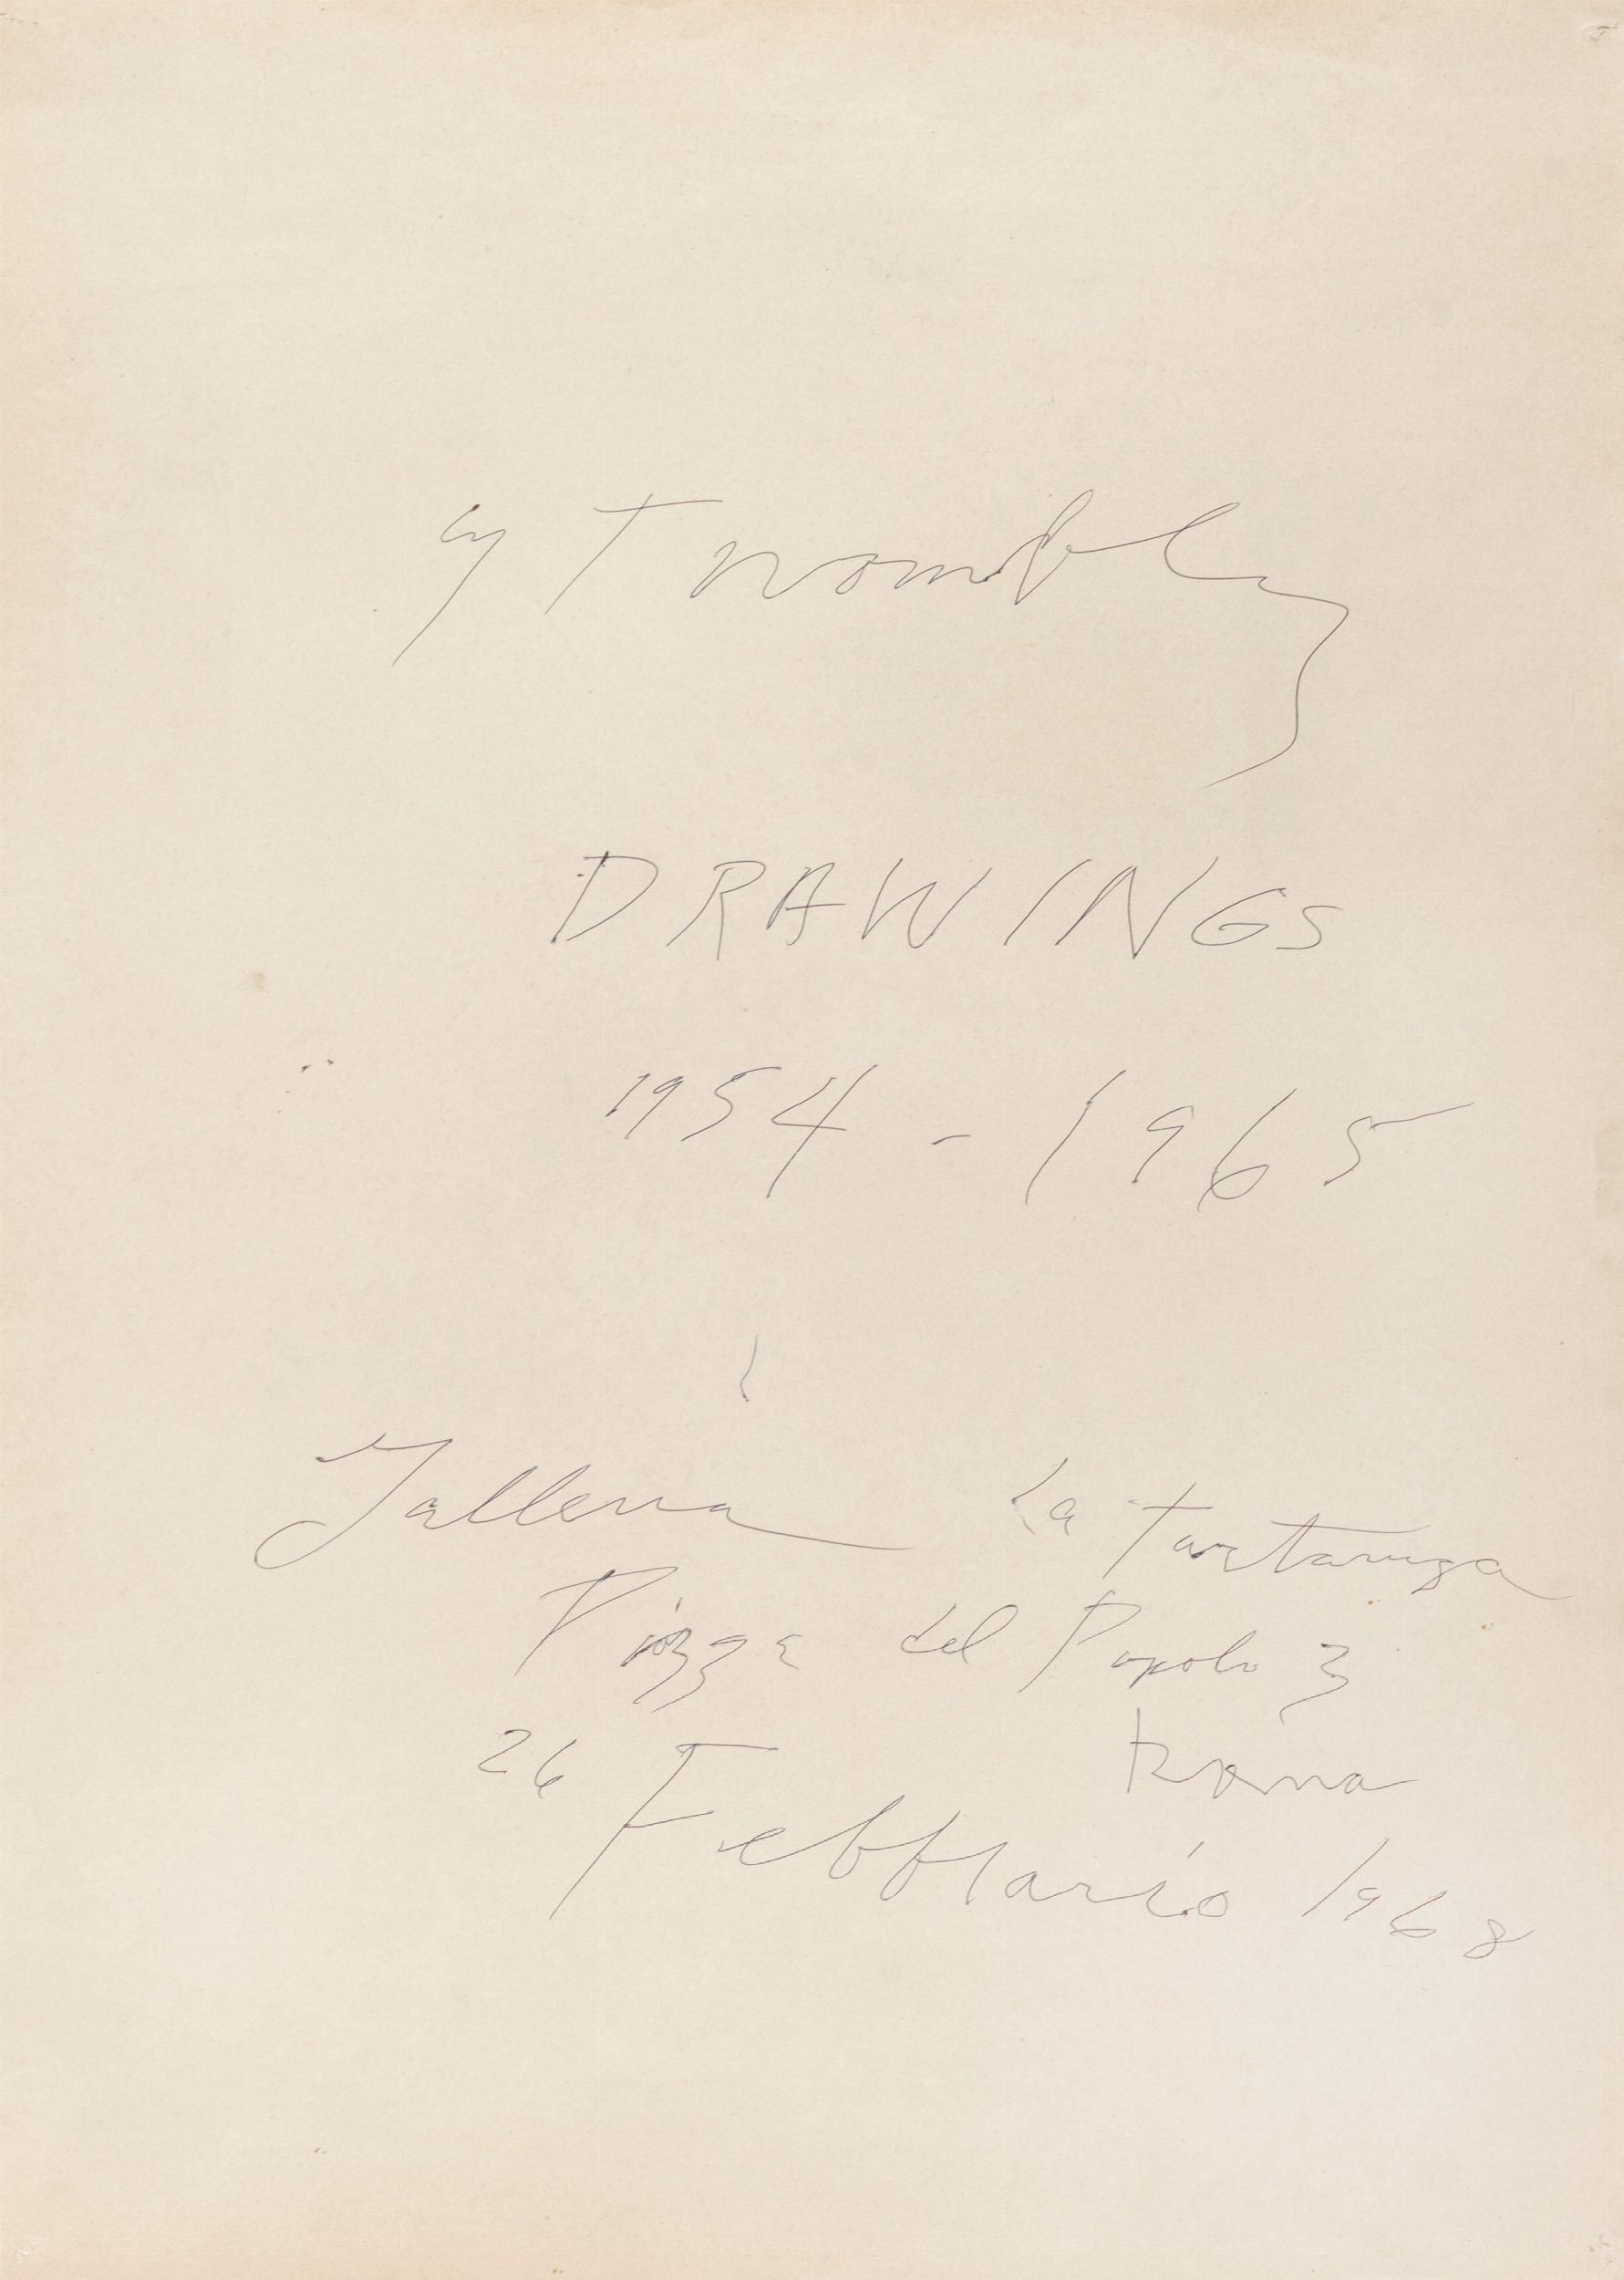 Cy Twombly
DRAWINGS
1954 - 1965
Galleria La Tartaruga
Piazza del Popolo 3
Roma
26 Febbraio 1968